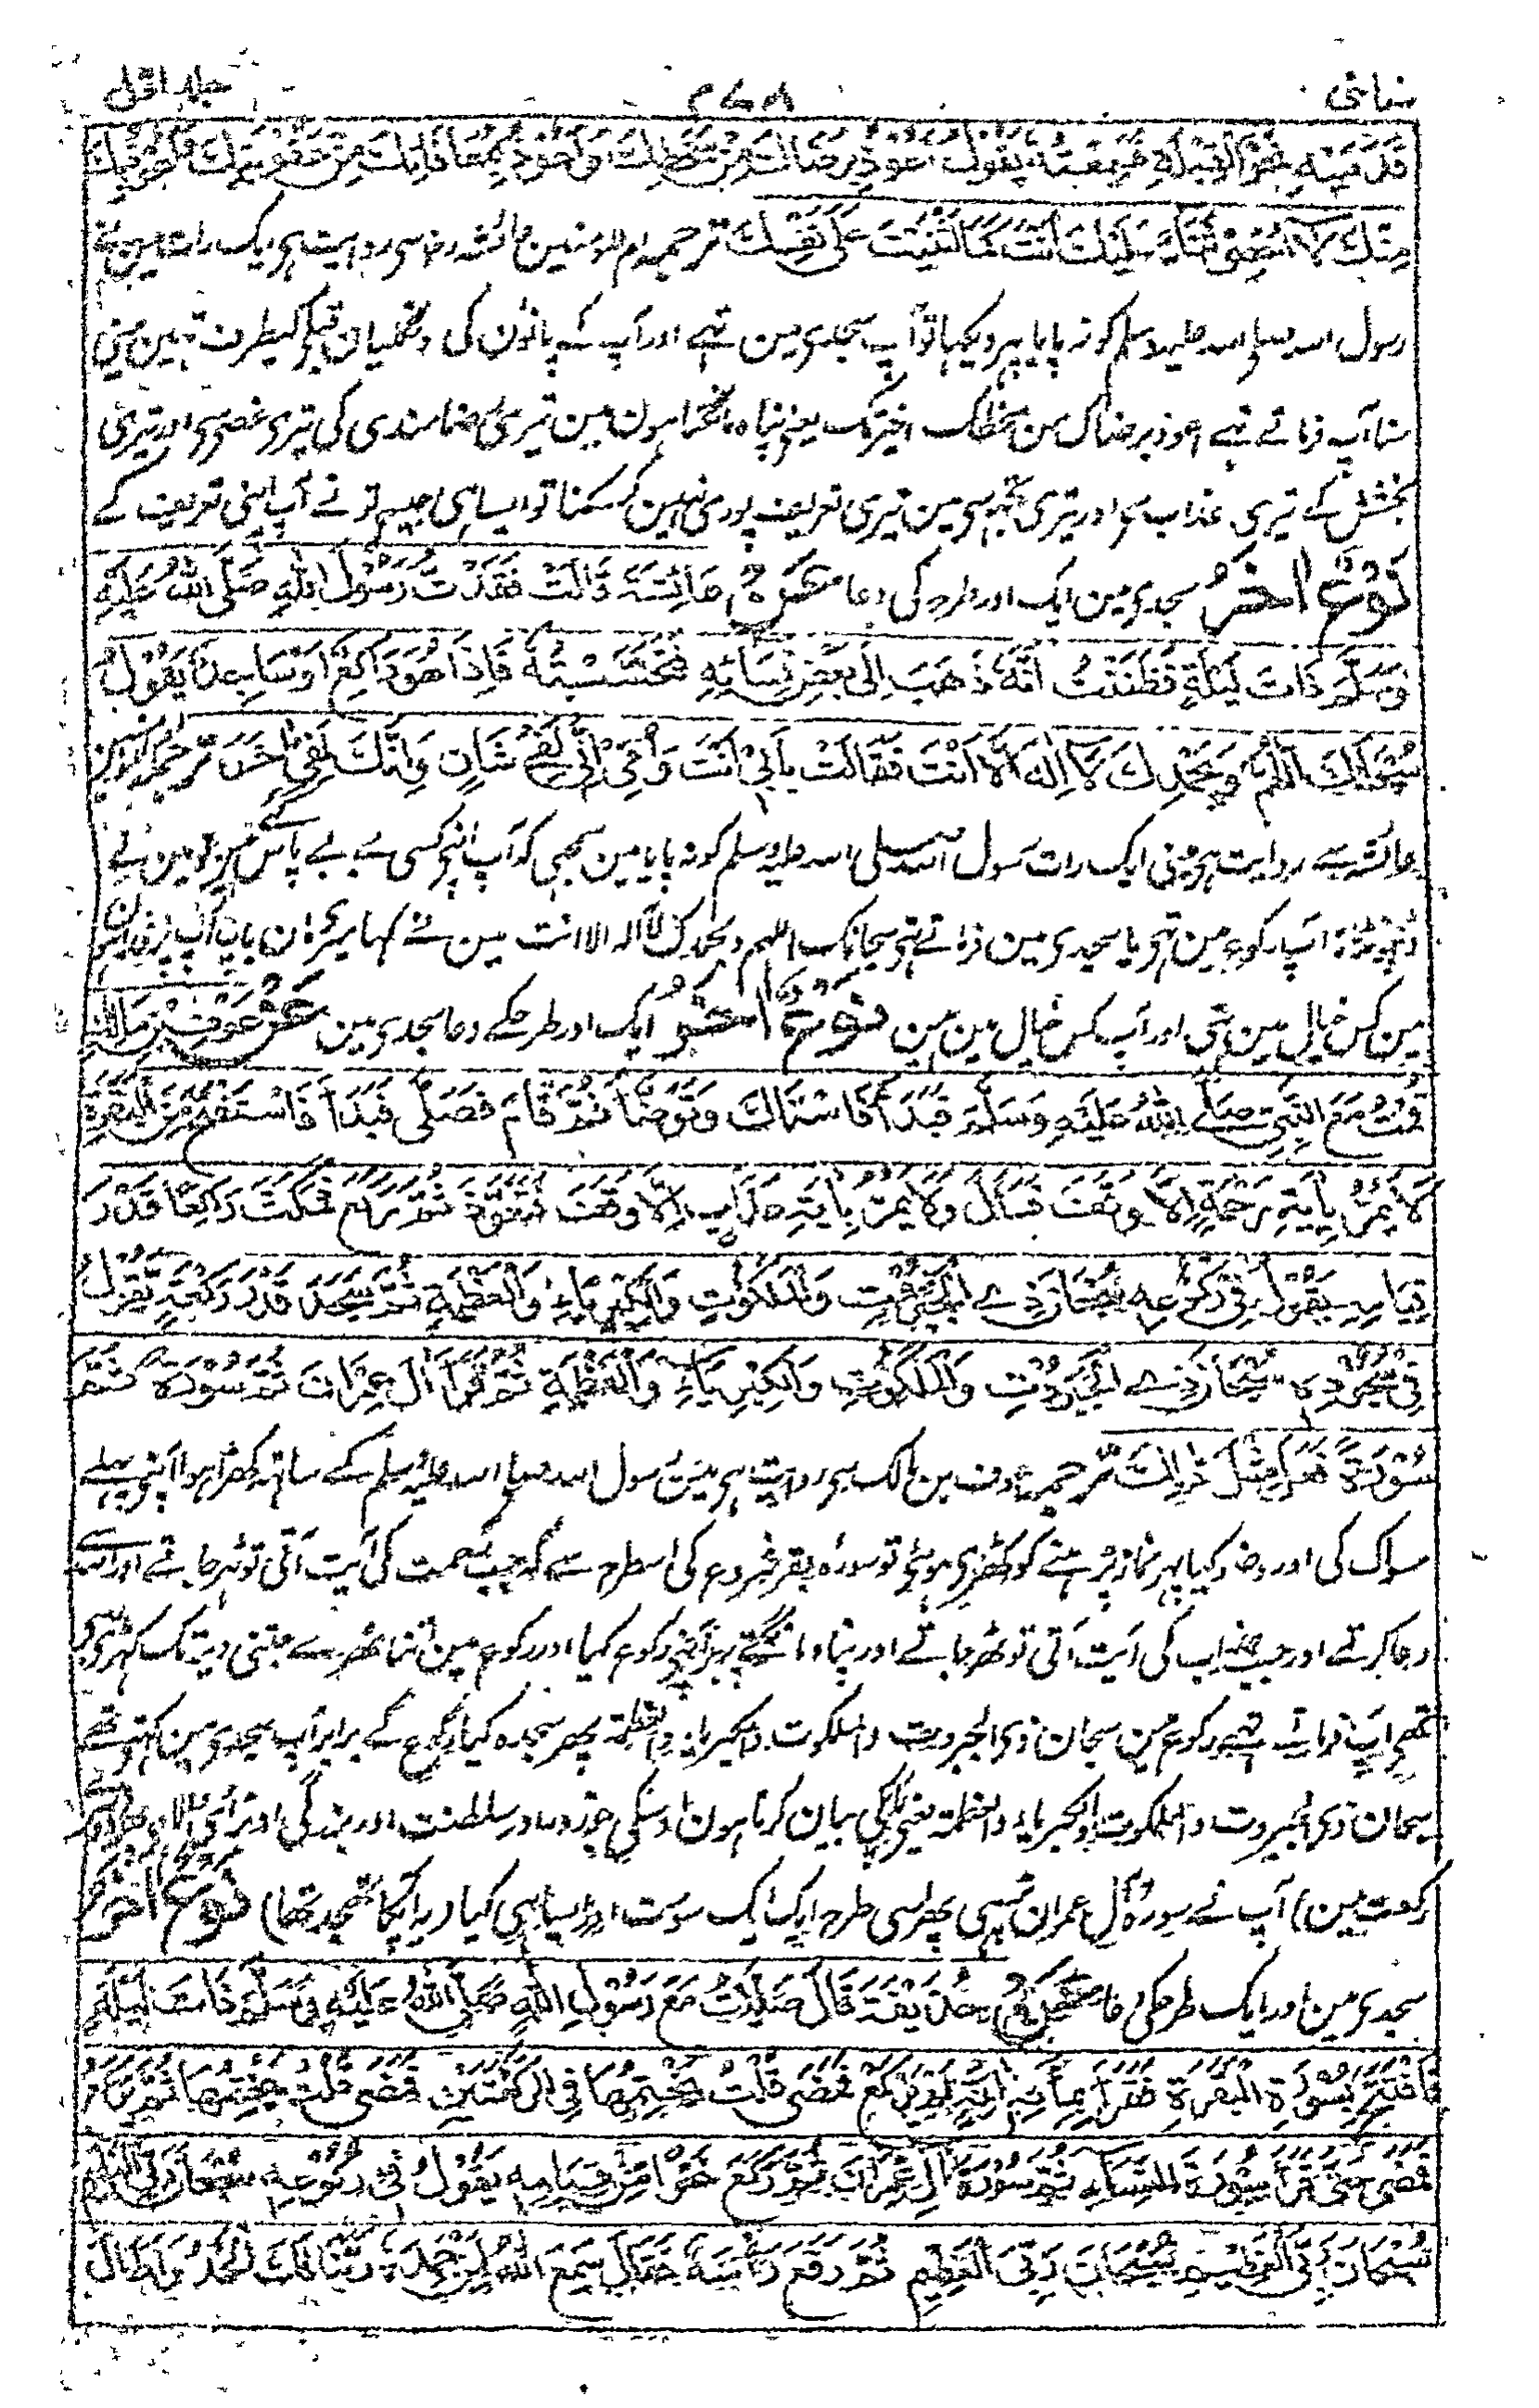 نسائی ۴۷۸ جلد اول
قَدَمَيْهِ نَحْوَ الْقِبْلَةِ فَسَمِعْتُهُ يَقُولُ أَعُوذُ بِرِضَاكَ مِنْ سَخَطِكَ وَأَعُوذُ بِمُعَافَاتِكَ مِنْ عُقُوبَتِكَ وَأَعُوذُ بِكَ
مِنْكَ لَا أُحْصِي ثَنَاءً عَلَيْكَ أَنْتَ كَمَا أَثْنَيْتَ عَلَى نَفْسِكَ ترجمہ ام المؤمنین عائشہ رض سے روایت ہی ایک رات مین نے
رسول اللہ صلی اللہ علیہ وسلم کو نہ پایا پہر دیکہا تو آپ سجدی مین تہے اور آپ کے پانؤن کی اونگلیان قبلہ کیطرف تہین مینی
سنا آپ فرماتے تہے اعوذ برضاک من سخطک اخیر تک یعنی پناہ مانگتا ہون مین تیری رضامندی کی تیری غصی سی اور تیری
بخشش کے تیری عذاب سی اور تیری تجہہ سی مین تیری تعریف پوری نہین کر سکتا تو ایسا ہی جیسے تو نے آپ اپنی تعریف کے
نَوْعٌ اٰخَرُ سجدی مین ایک اور طرح کی دعا عَنْ عَائِشَةَ قَالَتْ فَقَدْتُ رَسُولَ اللّٰهِ صَلَّى اللّٰهُ عَلَيْهِ
وَسَلَّمَ ذَاتَ لَيْلَةٍ فَظَنَنْتُ أَنَّهُ ذَهَبَ إِلَى بَعْضِ نِسَائِهِ فَتَحَسَّسْتُهُ فَإِذَا هُوَ رَاكِعٌ أَوْ سَاجِدٌ يَقُولُ
سُبْحَانَكَ اللّٰهُمَّ وَبِحَمْدِكَ لَا إِلٰهَ إِلَّا أَنْتَ فَقَالَتْ بِأَبِي أَنْتَ وَأُمِّي إِنِّي لَفِي شَانٍ وَإِنَّكَ لَفِي اٰخَرَ ترجمہ ام المؤمنین
عائشہ سے روایت ہی مینی ایک رات رسول اللہ صلی اللہ علیہ وسلم کو نہ پایا مین سمجہی کہ آپ اپنی کسی بے بے پاس گئے ہین تو مین نے
ڈہونڈا آپ رکوع مین تہے یا سجدی مین فرماتے تہے سبحانک اللہم و بحمدک لا الہ الا انت مین نے کہا میری مان باپ آپ پر فدا ہون
مین کس خیال مین تہی اور آپ کس خیال مین ہین نَوْعٌ اٰخَرُ ایک اور طرح کے دعا سجدی مین عَنْ عَوْفِ بْنِ مَالِكٍ
قُمْتُ مَعَ النَّبِيِّ صَلَّى اللّٰهُ عَلَيْهِ وَسَلَّمَ فَبَدَأَ فَاسْتَاكَ وَتَوَضَّأَ ثُمَّ قَامَ فَصَلَّى فَبَدَأَ فَاسْتَفْتَحَ مِنَ الْبَقَرَةِ
لَا يَمُرُّ بِاٰيَةِ رَحْمَةٍ إِلَّا وَقَفَ فَسَأَلَ وَلَا يَمُرُّ بِاٰيَةِ عَذَابٍ إِلَّا وَقَفَ فَتَعَوَّذَ ثُمَّ رَكَعَ فَمَكَثَ رَاكِعًا قَدْرَ
قِيَامِهِ يَقُولُ فِي رُكُوعِهِ سُبْحَانَ ذِي الْجَبَرُوتِ وَالْمَلَكُوتِ وَالْكِبْرِيَاءِ وَالْعَظَمَةِ ثُمَّ سَجَدَ قَدْرَ رَكْعَةٍ يَقُولُ
فِي سُجُودِهِ سُبْحَانَ ذِي الْجَبَرُوتِ وَالْمَلَكُوتِ وَالْكِبْرِيَاءِ وَالْعَظَمَةِ ثُمَّ قَرَأَ اٰلَ عِمْرَانَ ثُمَّ سُورَةً ثُمَّ
سُورَةً فَعَلَ مِثْلَ ذٰلِكَ ترجمہ عوف بن مالک سی روایت ہی مین رسول اللہ صلی اللہ علیہ وسلم کے ساتہہ کھڑا ہوا آپنی پہلے
مسواک کی اور وضو کیا پہر نماز پڑہنے کو کھڑی ہوئی تو سورۂ بقر شروع کی اسطرح سے کہ جب رحمت کی آیت آتی تو ٹہر جاتے اور اللہ سے
دعا کرتے اور جب عذاب کی آیت آتی تو ٹھر جاتے اور پناہ مانگتے پہر آپنے رکوع کیا اور رکوع مین اتنا ٹھرے جتنی دیر تک کہڑی رہی
تھی آپ فرماتے تہے رکوع مین سبحان ذی الجبروت والملکوت والکبریاء والعظمۃ پھر سجدہ کیا رکوع کے برابر آپ سجدی مین کہتے تھے
سبحان ذی الجبروت والملکوت والکبریاء والعظمۃ یعنی پاکی بیان کرتا ہون اوسکی جو زور اور سلطنت اور بزرگی اور بڑائی
رکعت مین) آپ نے سورۂ آل عمران پڑہی پھر اسی طرح ایک ایک سورت اور ایسا ہی کیا (یہ آپکا تہجد تھا) نَوْعٌ اٰخَرُ
سجدی مین اور ایک طرح کی دعا عَنْ حُذَيْفَةَ قَالَ صَلَّيْتُ مَعَ رَسُولِ اللّٰهِ صَلَّى اللّٰهُ عَلَيْهِ وَسَلَّمَ ذَاتَ لَيْلَةٍ
فَافْتَتَحَ بِسُورَةِ الْبَقَرَةِ فَقَرَأَ بِمِأَةِ اٰيَةٍ لَمْ يَرْكَعْ فَمَضَى قُلْتُ يَخْتِمُهَا فِي الرَّكْعَتَيْنِ فَمَضَى قُلْتُ يَخْتِمُهَا ثُمَّ يَرْكَعُ
فَمَضَى حَتَّى قَرَأَ سُورَةَ النِّسَاءِ ثُمَّ سُورَةَ اٰلِ عِمْرَانَ ثُمَّ رَكَعَ نَحْوًا مِنْ قِيَامِهِ يَقُولُ فِي رُكُوعِهِ سُبْحَانَ رَبِّيَ الْعَظِيمِ
سُبْحَانَ رَبِّيَ الْعَظِيمِ سُبْحَانَ رَبِّيَ الْعَظِيمِ ثُمَّ رَفَعَ رَأْسَهُ فَقَالَ سَمِعَ اللّٰهُ لِمَنْ حَمِدَهُ رَبَّنَا لَكَ الْحَمْدُ وَأَطَالَ